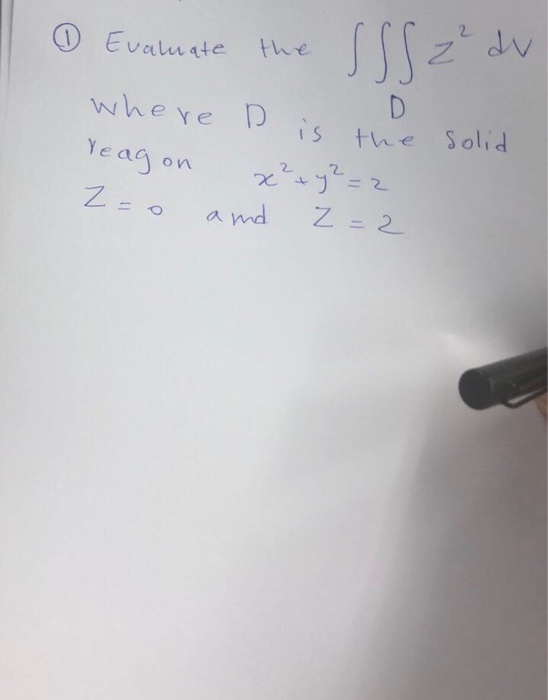 ① Evaluate the ∫∫∫ z² dv
D
where D is the solid
reagon x² + y² = 2
Z = 0 amd Z = 2